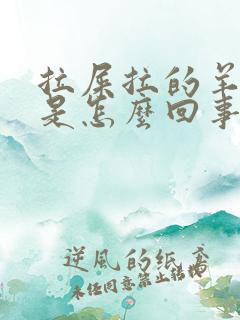 拉屎拉的羊
是怎麼回事
逆風的紙鳶
未经同意禁止转载